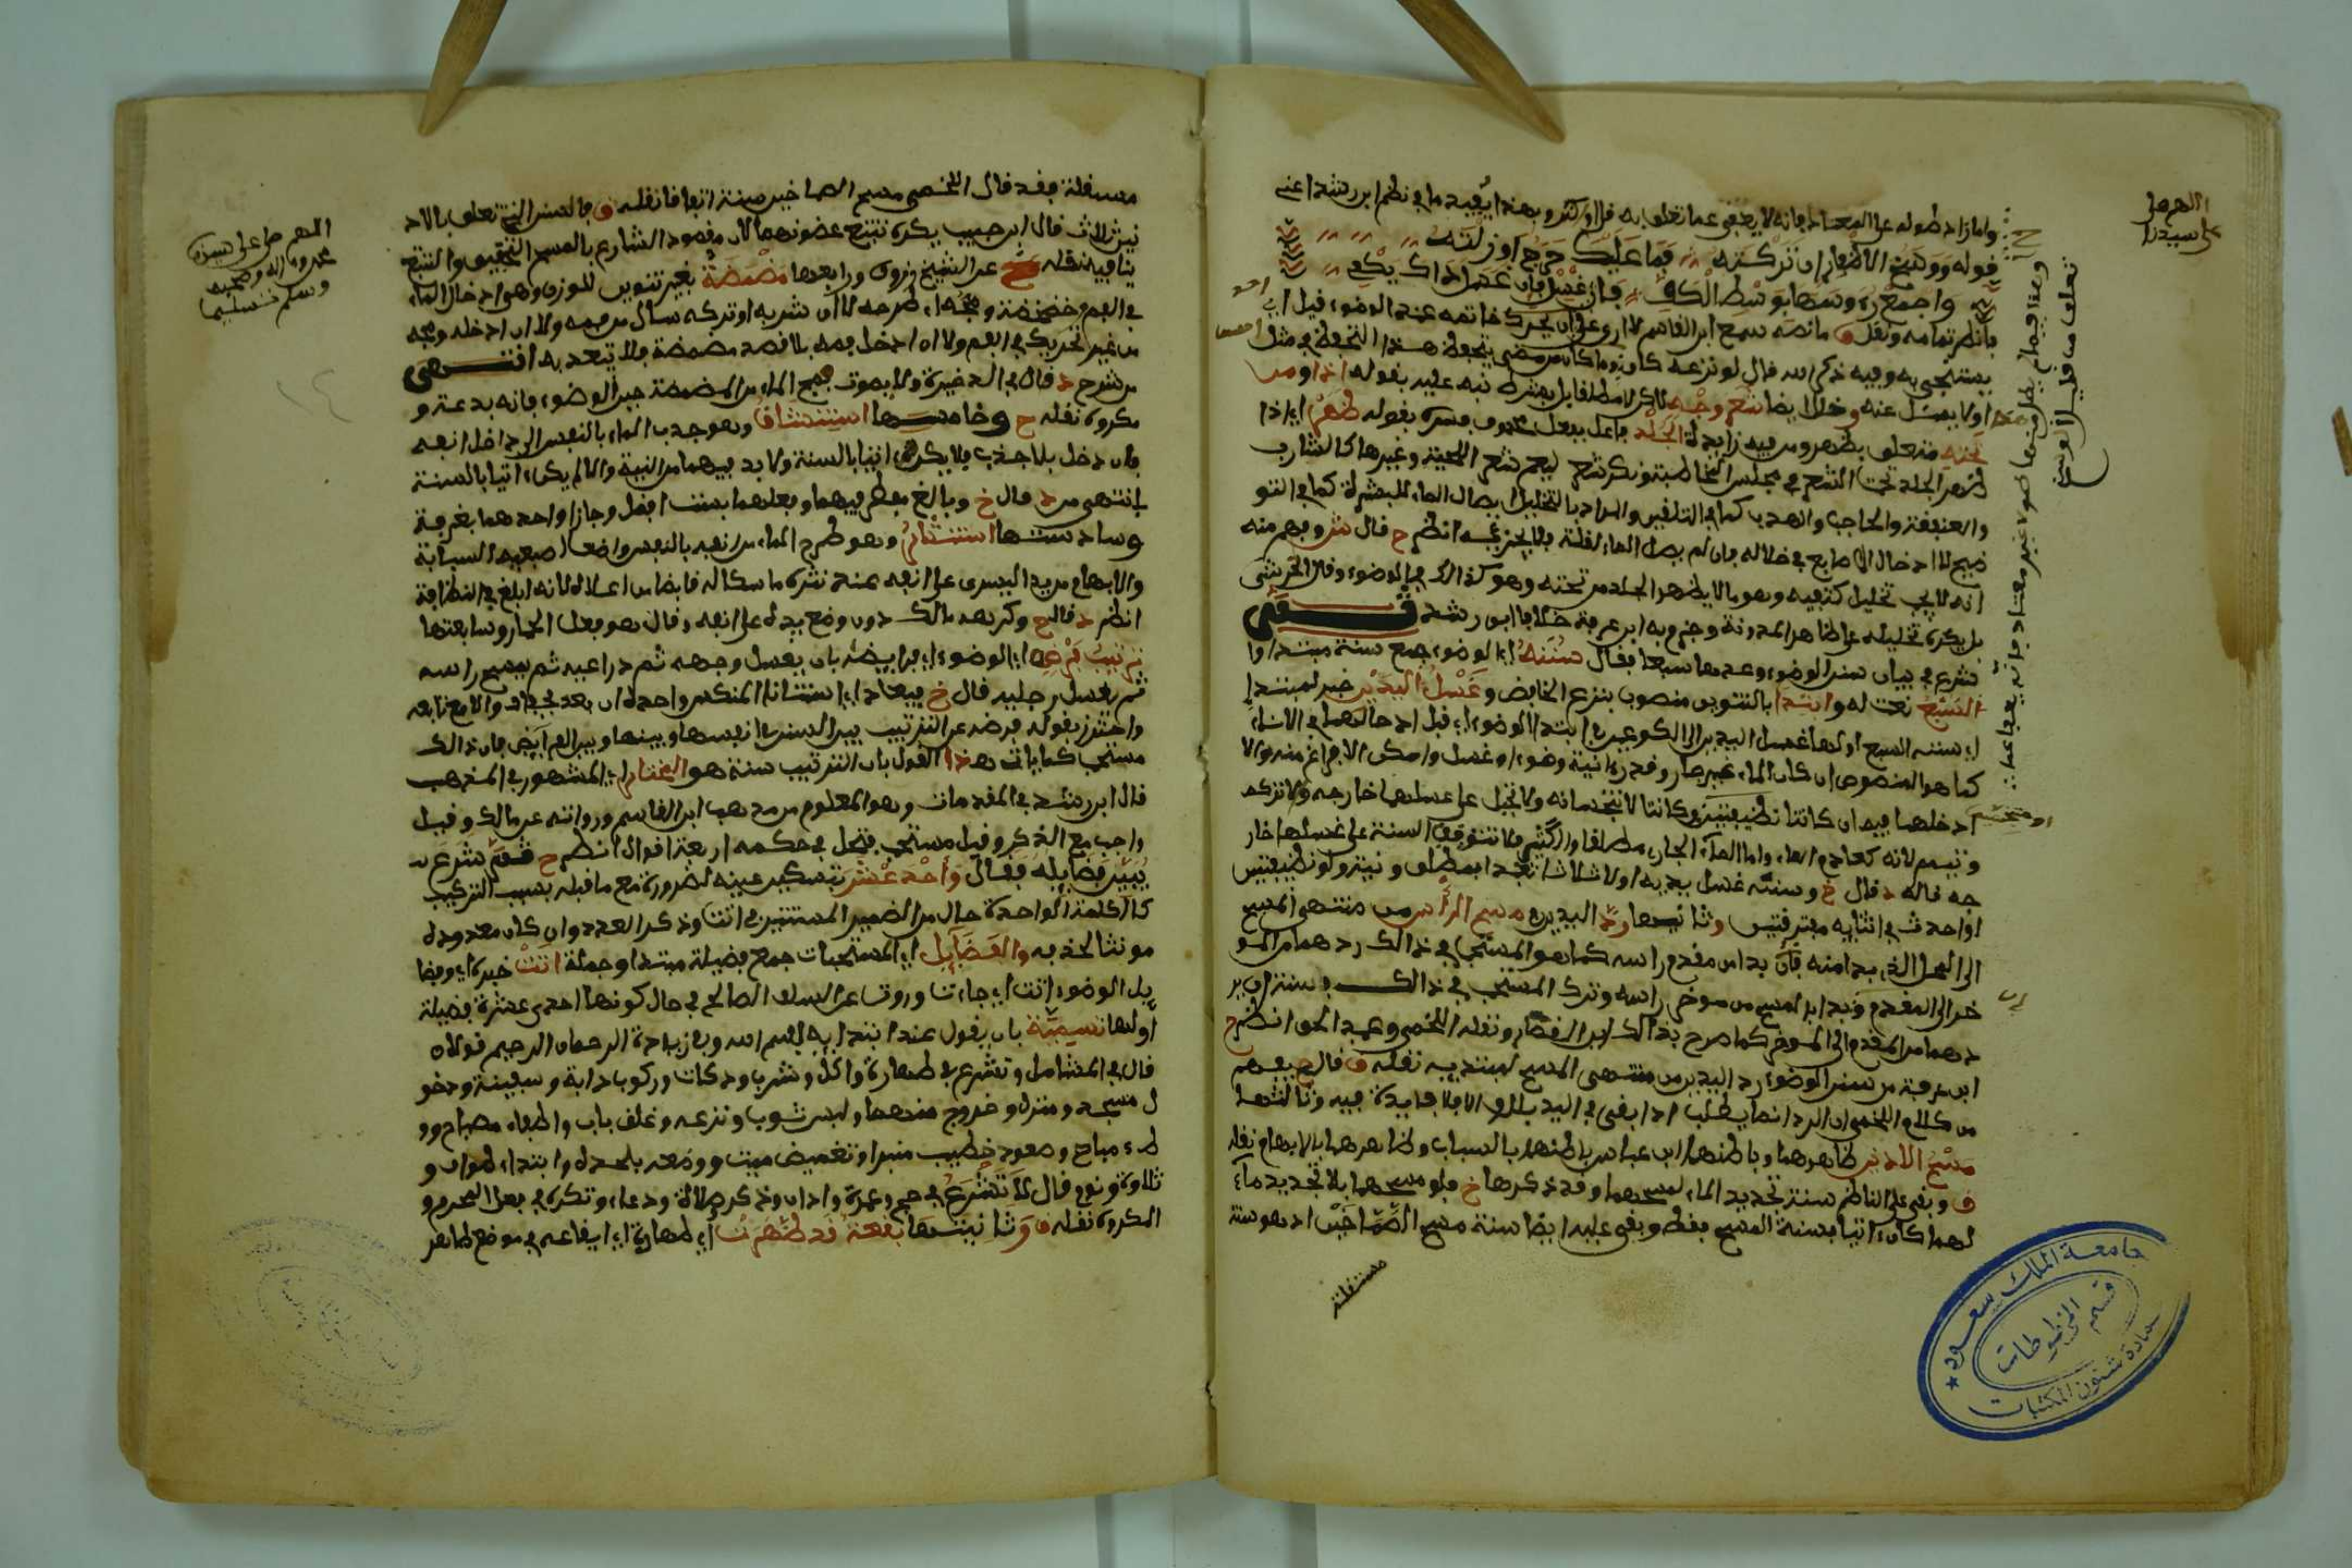 اللهم صل
على سيدنا
واما زاد طوله على المعتاد فانه لا يعفى عما تعلق به قل او كثر وبهذا يقيد ما في نظم ابن رشد اعني
قوله ووسخ الاظفار ان تركته فما عليك حرج او زلته
واجمع رءوسها بوسط الكف فان غسل ذاك يكفي
فانظر تمامه ونقل ق ما نصه سمع ابن القاسم لا ارى على ان يحرك خاتمه عند الوضوء قيل ا
يستنجي به وفيه ذكر الله قال لو نزعه كان
اولا يغسل عنه وخلل ايضا شعر وجه
تحته متعلق بظهر ومن فيه زايدة الجلد فاعل بفعل محذوف يفسره بقوله ظهر اي اذا
ظهر الجلد تحت الشعر في مجلس المخاطبة ونكر شعر ليعم شعر اللحية وغيرها كالشارب
والعنفقة والحاجب والهدب كما في التلقين والمراد بالتخليل ايصال الماء للبشرة كما في التو
ضيح لا ادخال الاصابع في خلاله فان لم يصل الماء لقلة فلا يجزئه انظر ح قال ش وفهم منه
انه لا يجب تخليل كثيفه وهو ما لا يظهر الجلد من تحته وهو كذلك في الوضوء وقال الخرشي
بل يكره تخليله على ظاهر المدونة وجزم به ابن عرفة خلافا لابن رشد
شرع في بيان سنن الوضوء وعدها سبعا فقال سننه اي الوضوء جمع سنة مبتدا وا
السبع نعت له وابتدا بالتنوين منصوب بنزع الخافض وغسل اليدين خبر لمبتدا
اي سننه السبع اولها غسل اليدين الى الكوعين في ابتدا الوضوء اي قبل ادخالهما في الاناء
كما هو المنصوص ان كان الماء غير جار وقدر ءانية وضوء او غسل وامكن الافراغ منه والا
ادخلهما فيه ان كانتا نظيفتين وكانتا لا تنجسانه ولا تحيل على غسلهما خارجه والا تركه
وتيمم لانه كعادم الماء واما الماء الجاري مطلقا والكثير فلا تتوقف السنة على غسلهما خار
جه قاله د قال خ وسننه غسل يديه اولا ثلاثا تعبدا بمطلق ونية ولو نظيفتين
او احدث في اثنايه مفترقتين وثانيها رد اليدين مسح الراس من منتهى المسح
الى المحل الذي بدا منه فان بدا من مقدم راسه كما هو المستحب في ذالك ردهما من المو
خر الى المقدم وان بدا بالمسح من موخر راسه وترك المستحب في ذالك فسنته ان ير
دهما من المقدم الى الموخر كما صرح بذالك ابن القصار ونقله اللخمي وعبد الحق انظر ح
ابن عرفة من سنن الوضوء رد اليدين من منتهى المسح لمبتديه نقله ق قال ح يفهم
من كلام اللخمي ان الرد انما يطلب اذا بقي في اليد بلل والا فلا فايدة فيه وثالثها
مسح الاذنين ظاهرهما وباطنهما ابن عباس باطنهما بالسباب وظاهرهما بالابهام نقله
ق وبقي على الناظم سنة تجديد الماء لمسحهما وقد ذكرها خ فلو مسحهما بلا تجديد ماء
لهما كان ءاتيا بسنة المسح فقط وبقي عليه ايضا سنة مسح الصماخين اذ هو سنة
مستقلة
تعلق من قليل الوسخ
جامعة الملك سعود
قسم المخطوطات
عمادة شئون المكتبات
اللهم صل على سيدنا
محمد وءاله وصحبه
وسلم تسليما
مستقلة فقد قال اللخمي مسح الصماخين سنة اتفاقا نقله ق فالسنن التي تعلق بالاذ
نين ثلاث قال ابن حبيب يكره تتبع غضونهما لان مقصود الشارع بالمسح التخفيف والتتبع
ينافيه نقله ح عن الشيخ زروق ورابعها مضمضة بغير تنوين للوزن وهو ادخال الماء
في الفم وخضخضته ومجه اي طرحه لا ان شربه او تركه سال من فمه ولا ان ادخله ومجه
من غير تحريك في الفم ولا ان ادخل فمه بلا قصد مضمضة فلا يعتد به انتهى
من شرح د قال في الذخيرة ولا يصوت بمج الماء من المضمضة حين الوضوء فانه بدعة و
مكروه نقله ح وخامسها استنشاق وهو جذب الماء بالنفس الى داخل انفه
فان دخل بلا جذب فلا يكن ءاتيا بالسنة ولا بد فيهما من النية والا لم يكن ءاتيا بالسنة
انتهى من د قال خ وبالغ مفطر فيهما وفعلهما بست افضل وجازا او احدهما بغرفة
وسادستها استنثار وهو طرح الماء من انفه بالنفس واضعا اصبعيه السبابة
والابهام من يده اليسرى على انفه عند نثره ماسكا له قابضا من اعلاه لانه ابلغ في النظافة
انظر د قال ح وكره مالك دون وضع يده على انفه وقال هو فعل الحمار وسابعتها
ترتيب فرضه اي الوضوء اي فرايضه بان يغسل وجهه ثم ذراعيه ثم يمسح راسه
ثم يغسل رجليه قال خ فيعاد اي استنانا المنكس وحده ان بعد بجفاف والا مع تابعه
واحترز بقوله فرضه عن الترتيب بين السنن في انفسها وبينها وبين الفرايض فان ذالك
مستحب كما ياتي وهذا القول بان الترتيب سنة هو المختار اي المشهور في المذهب
قال ابن رشد في المقدمات وهو المعلوم من مذهب ابن القاسم وروايته عن مالك وقيل
واجب مع الذكر وقيل مستحب فتحصل في حكمه اربعة اقوال انظر ح ثم شرع
يبين فضايله فقال واحد عشر بتسكين عينه لضرورة مع ما قبله بسبب التركيب
كالكلمة الواحدة حال من الضمير المستتر في اتت وذكر العدد وان كان معدوده
مونثا لحذفه والفضايل اي المستحبات جمع فضيلة مبتدا وجملة اتت خبره اي وفضا
يل الوضوء اتت اي جاءت ورويت عن السلف الصالح في حال كونها احدى عشرة فضيلة
اولها تسمية بان يقول عند ابتدايه بسم الله وفي زيادة الرحمان الرحيم قولان
قال في الشامل وتشرع في طهارة واكل وشرب وذكاة وركوب دابة وسفينة ودخو
ل مسجد ومنزل وخروج منهما ولبس ثوب ونزعه وغلق باب واطفاء مصباح وو
طء مباح وصعود خطيب منبرا وتغميض ميت ووضعه بلحده وابتداء طواف و
تلاوة ونوم قال لا تشرع في حج وعمرة واذان وذكر وصلاة ودعاء وتكره في فعل المحرم و
المكروه نقله ق وثانيتها بقعة قد طهرت اي طهارة اي ايقاعه في موضع طاهر